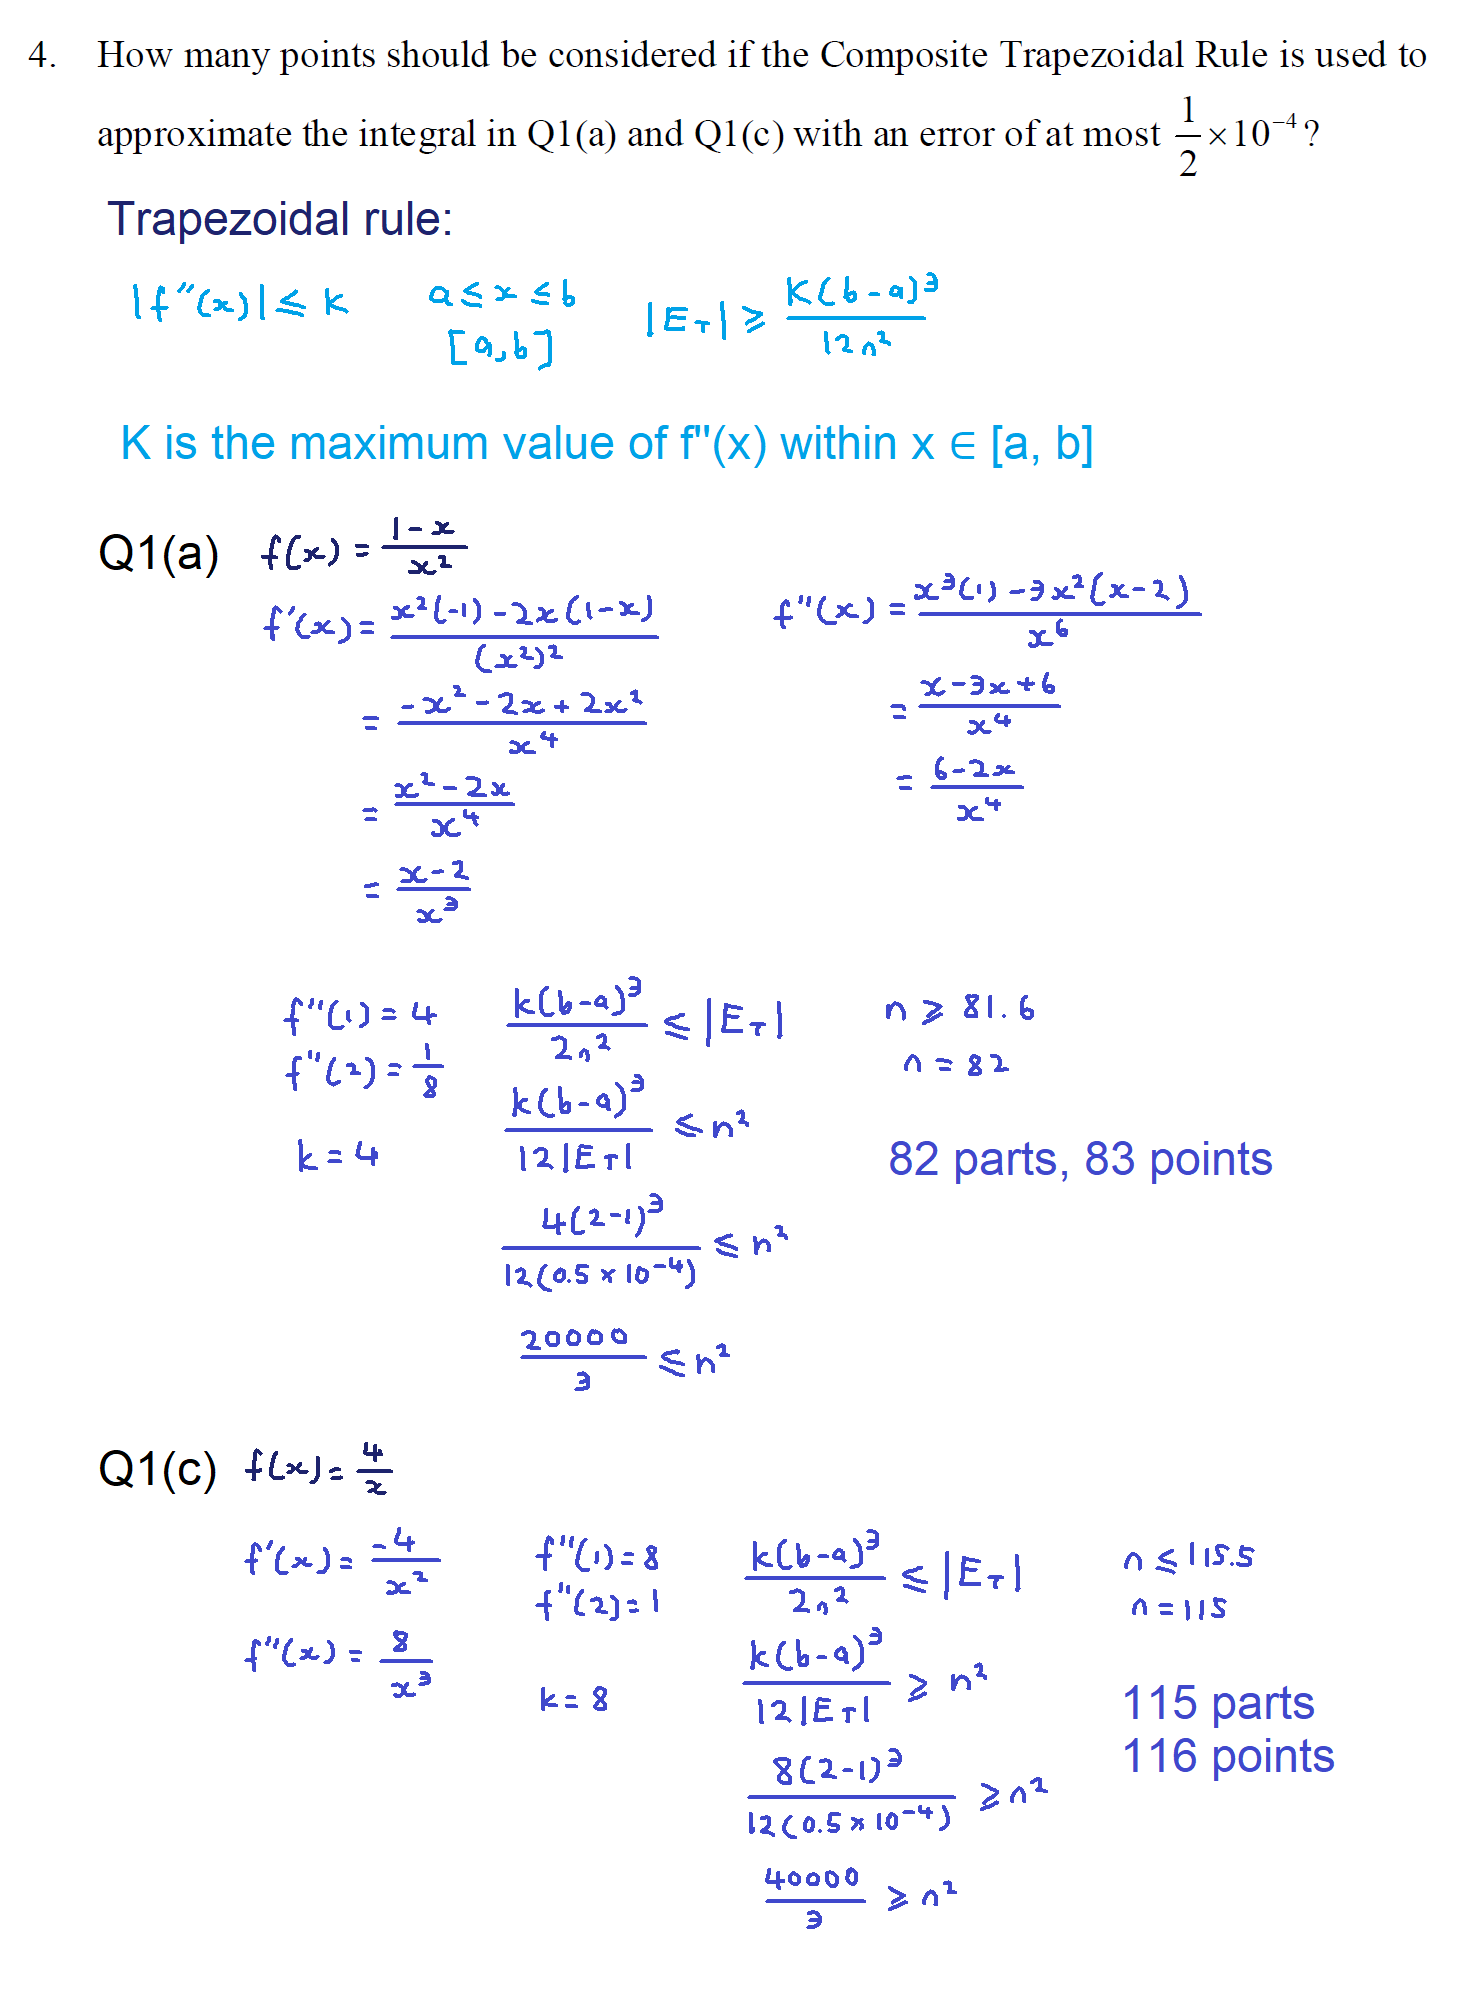 4. How many points should be considered if the Composite Trapezoidal Rule is used to
approximate the integral in Q1(a) and Q1(c) with an error of at most 1/2 × 10⁻⁴ ?
Trapezoidal rule:
|f''(x)| ≤ K
a ≤ x ≤ b
[a,b]
|E_T| ≥ K(b-a)³ / 12n²
K is the maximum value of f''(x) within x ∈ [a, b]
Q1(a) f(x) = (1-x) / x²
f'(x) = (x²(-1) - 2x(1-x)) / (x²)²
= (-x² - 2x + 2x²) / x⁴
= (x² - 2x) / x⁴
= (x-2) / x³
f''(x) = (x³(1) - 3x²(x-2)) / x⁶
= (x - 3x + 6) / x⁴
= (6-2x) / x⁴
f''(1) = 4
f''(2) = 1/8
k = 4
k(b-a)³ / 2n² ≤ |E_T|
k(b-a)³ / 12|E_T| ≤ n²
4(2-1)³ / 12(0.5 × 10⁻⁴) ≤ n²
20000 / 3 ≤ n²
n ≥ 81.6
n = 82
82 parts, 83 points
Q1(c) f(x) = 4/x
f'(x) = -4 / x²
f''(x) = 8 / x³
f''(1) = 8
f''(2) = 1
k = 8
k(b-a)³ / 2n² ≤ |E_T|
k(b-a)³ / 12|E_T| ≥ n²
8(2-1)³ / 12(0.5 × 10⁻⁴) ≥ n²
40000 / 3 ≥ n²
n ≤ 115.5
n = 115
115 parts
116 points